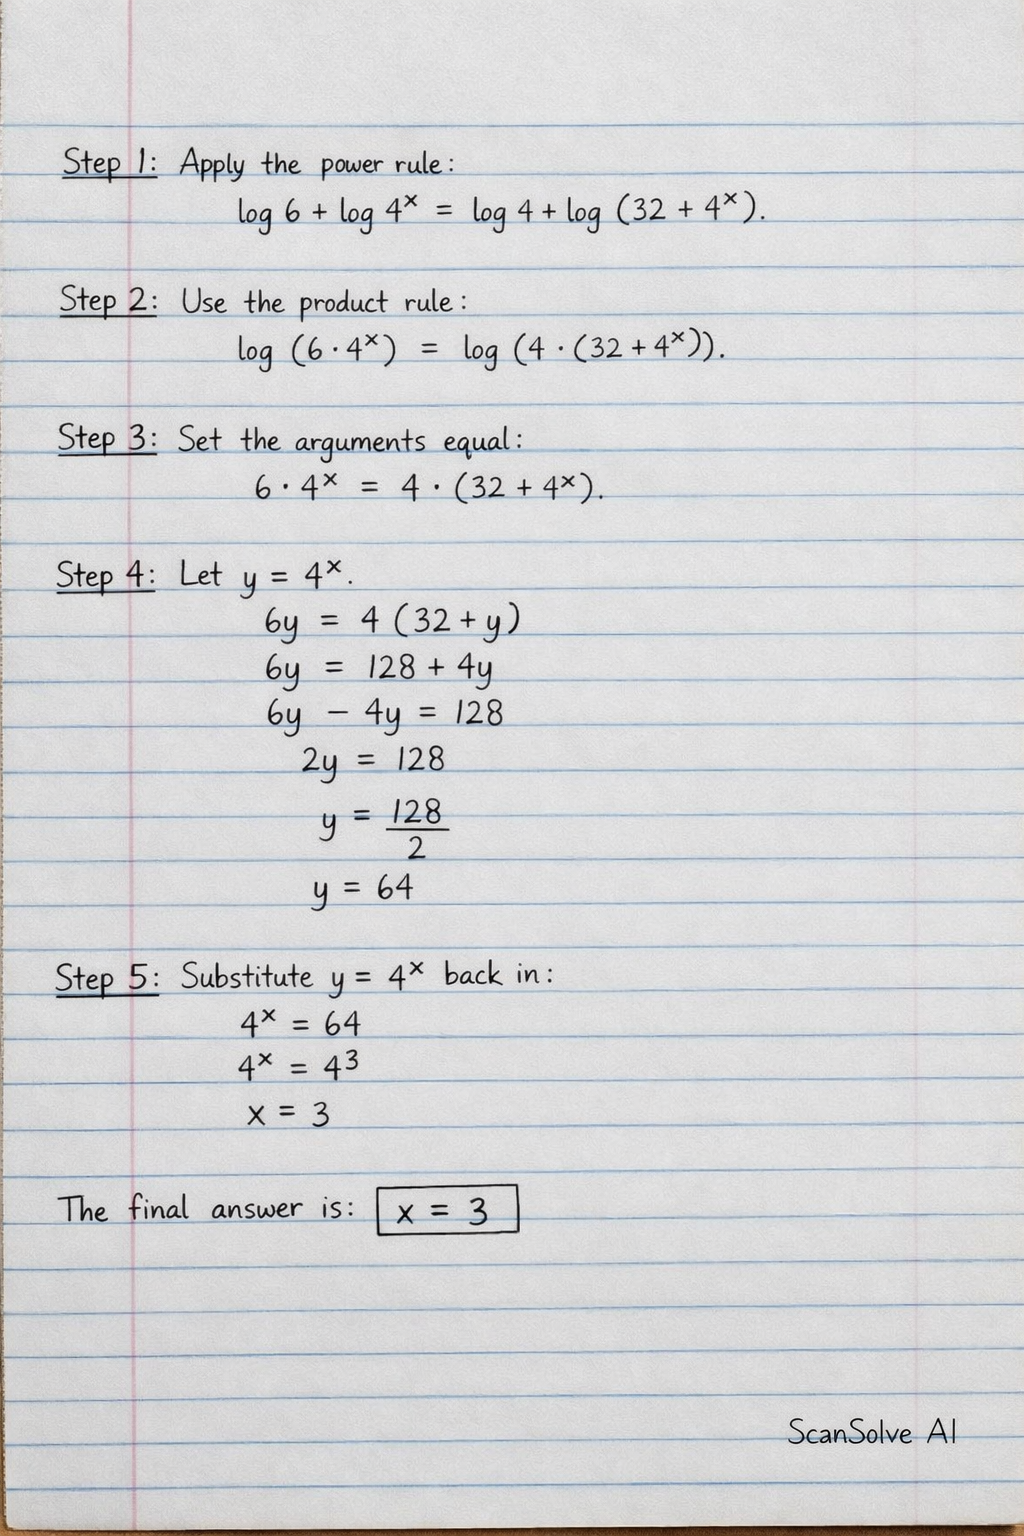 Step 1: Apply the power rule:
log 6 + log 4ˣ = log 4 + log (32 + 4ˣ).
Step 2: Use the product rule:
log (6 · 4ˣ) = log (4 · (32 + 4ˣ)).
Step 3: Set the arguments equal:
6 · 4ˣ = 4 · (32 + 4ˣ).
Step 4: Let y = 4ˣ.
6y = 4 (32 + y)
6y = 128 + 4y
6y − 4y = 128
2y = 128
y = 128/2
y = 64
Step 5: Substitute y = 4ˣ back in:
4ˣ = 64
4ˣ = 4³
x = 3
The final answer is: x = 3
ScanSolve AI